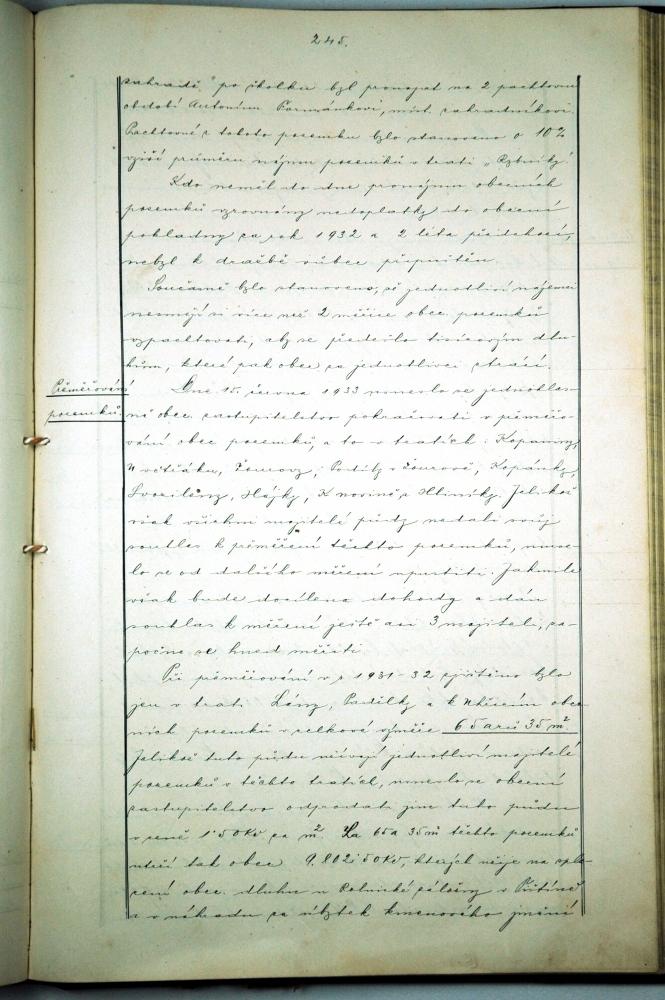 245.
zahradě" po školku byl pronajat na 2 pachtovní
období Antonínu Formánkovi, míst. zahradníkovi.
Pachtovné z tohoto pozemku bylo stanoveno o 10%
vyšší průměru nájmu pozemků v trati „Rybníky".
Kdo neměl do dne pronájmu obecních
pozemků vyrovnány nedoplatky do obecní
pokladny za rok 1932 a 2 léta předchozí,
nebyl k dražbě vůbec připuštěn.
Současně bylo stanoveno, že jednotliví nájemci
nesmějí si více než 2 měřice obec. pozemků
vypachtovati, aby se předešlo tisícovým dlu-
hům, které pak obec za jednotlivci ztrácí.
Přeměřování
pozemků.
Dne 15. června 1933 usneslo se jednohlas-
ně obec. zastupitelstvo pokračovati v přeměřo-
vání obec pozemků, a to v tratích: Kopaniny,
Padělky, Kopánky,
Hájky, K novině a Hliníky. Jelikož
však všichni majitelé půdy nedali svůj
souhlas k přeměření těchto pozemků, muse-
lo se od dalšího měření upustiti. Jakmile
však bude docílena dohody a dán
souhlas k měření ještě asi 3 majiteli, za-
počne se hned měřiti.
Při přeměřování v r 1931-32 zjištěno bylo
jen v trati Lány, Padělky a k obec-
ních pozemků v celkové výměře 65 arů 35 m².
Jelikož tuto půdu užívají jednotliví majitelé
pozemků v těchto tratích, usneslo se obecní
zastupitelstvo odprodati jim tuto půdu
v ceně 1·50 Kč za m². Za 65a 35m² těchto pozemků
utrží tak obec 9.802·50 Kč, kterých užije na spla-
cení obec. dluhu u Rolnické záložny v
a v náhradu za úbytek kmenového jmění